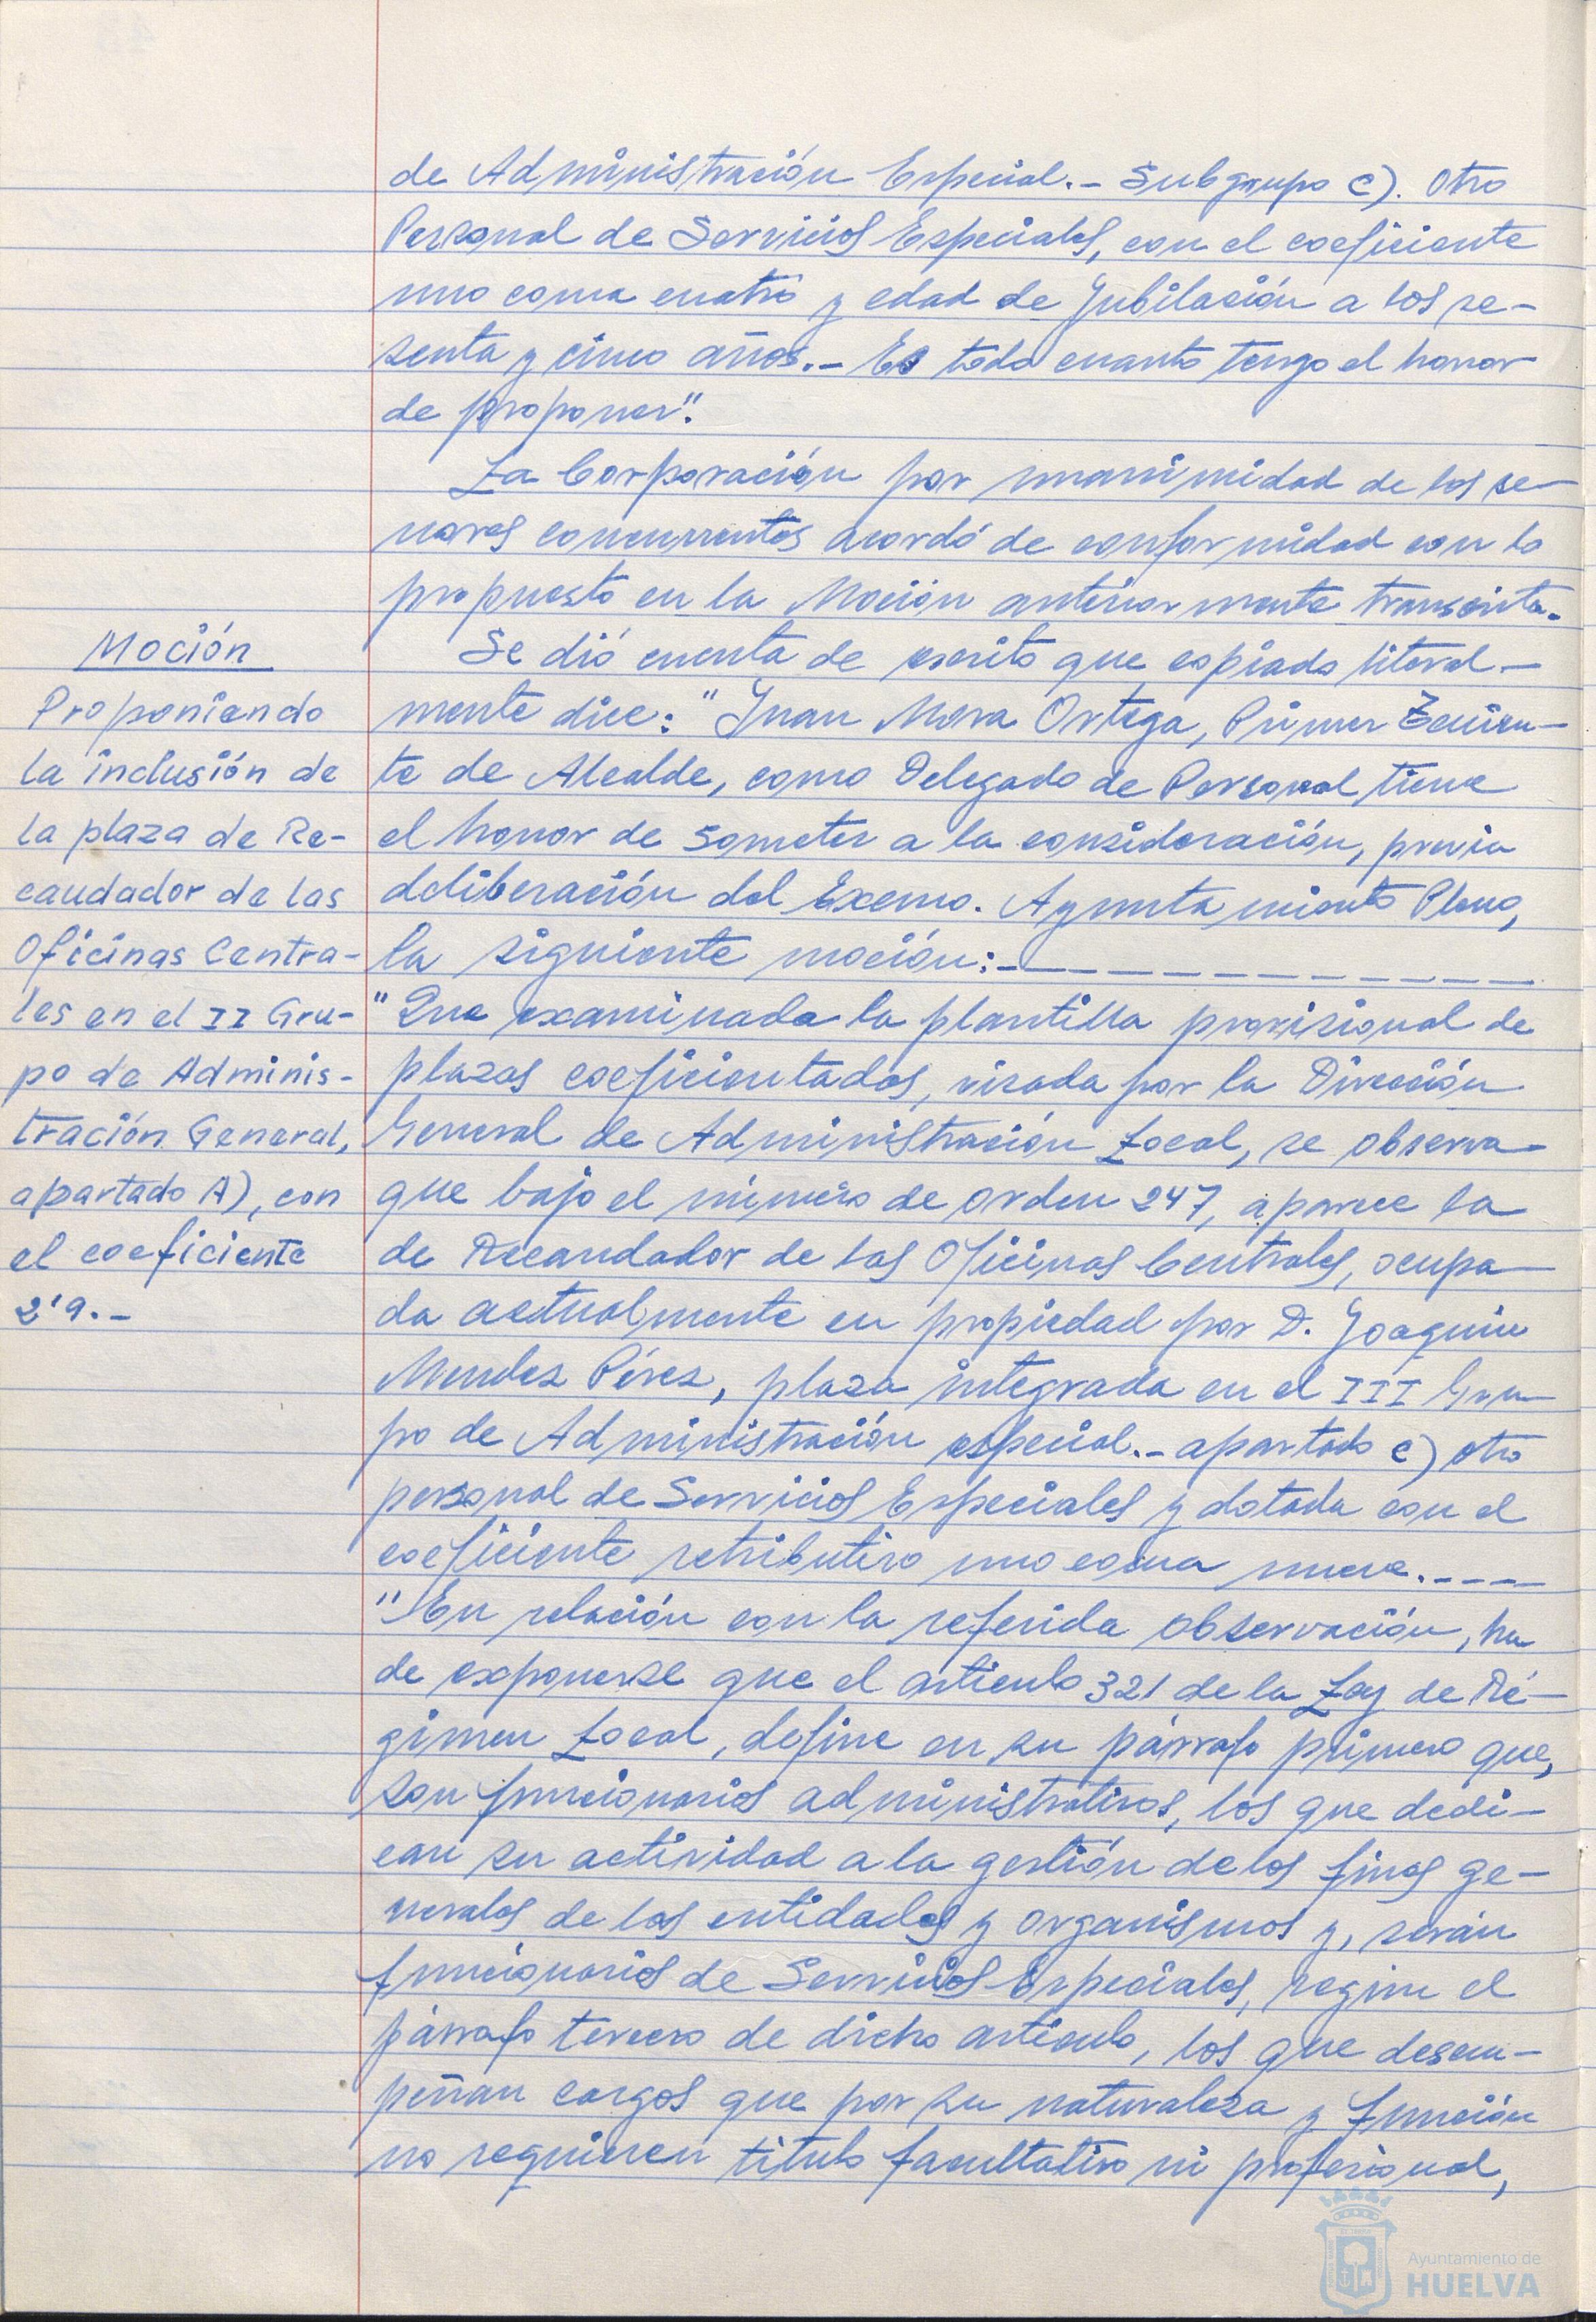 de Administración Especial.- Subgrupo C). Otro
Personal de Servicios Especiales, con el coeficiente
uno coma cuatro y edad de jubilación a los se-
senta y cinco años.- Es todo cuanto tengo el honor
de proponer".
La Corporación por unanimidad de los se-
ñores concurrentes acordó de conformidad con lo
propuesto en la Moción anteriormente transcrita.
Moción
Proponiendo
la inclusión de
la plaza de Re-
caudador de las
Oficinas Centra-
les en el II Gru-
po de Adminis-
tración General,
apartado A), con
el coeficiente
2'9.-
Se dió cuenta de escrito que copiado literal-
mente dice: "Juan Mora Ortega, Primer Tenien-
te de Alcalde, como Delegado de Personal tiene
el honor de someter a la consideración, previa
deliberación del Excmo. Ayuntamiento Pleno,
la siguiente moción:-
"Que examinada la plantilla provisional de
plazas coeficientadas, visada por la Dirección
General de Administración Local, se observa
que bajo el número de orden 247, aparece la
de Recaudador de las Oficinas Centrales, ocupa-
da actualmente en propiedad por D. Joaquin
Mendez Pérez, plaza integrada en el III Gru-
po de Administración especial.- apartado C) otro
personal de Servicios Especiales y dotada con el
coeficiente retributivo uno coma nueve.----
"En relación con la referida observación, ha
de exponerse que el articulo 321 de la Ley de Ré-
gimen Local, define en su párrafo primero que,
son funcionarios administrativos, los que dedi-
can su actividad a la gestión de los fines ge-
nerales de las entidades y organismos y, serán
funcionarios de Servicios Especiales, según el
párrafo tercero de dicho articulo, los que desem-
peñan cargos que por su naturaleza y función
no requieren titulo facultativo ni profesional,
Ayuntamiento de
HUELVA